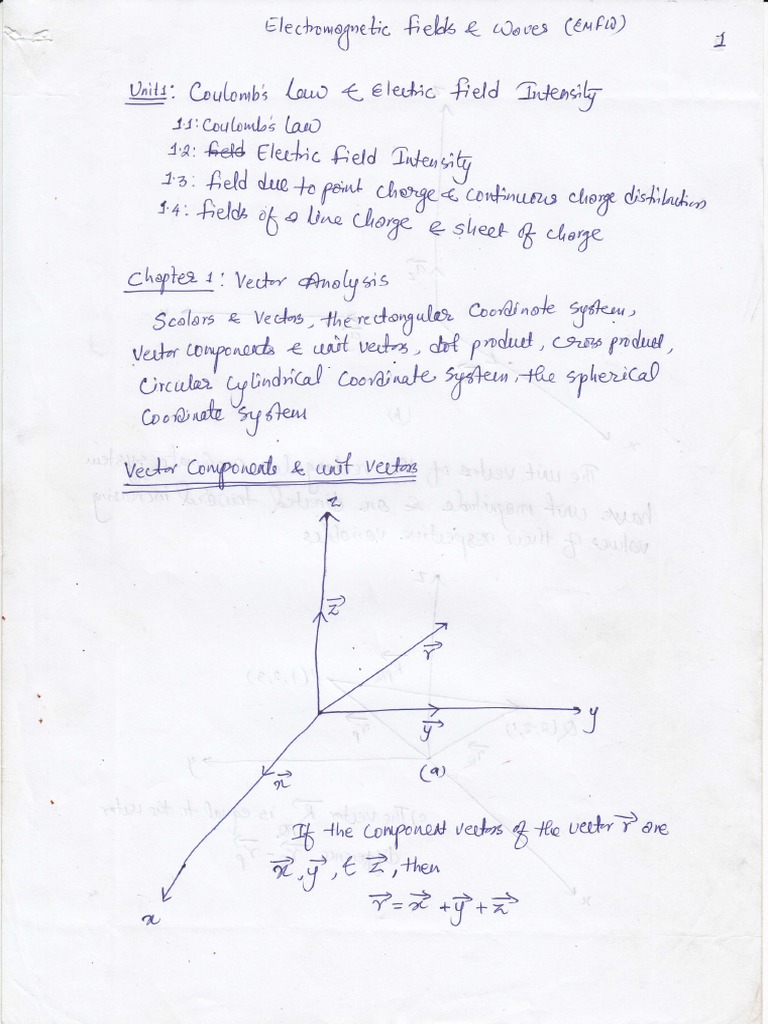 Electromagnetic fields & Waves (EMFW)
1
Unit1: Coulomb's Law & Electric field Intensity
1.1: Coulomb's Law
1.2: field Electric field Intensity
1.3: field due to point charge & continuous charge distribution
1.4: fields of a line charge & sheet of charge
Chapter 1: Vector Analysis
Scalars & Vectors, the rectangular Coordinate System,
Vector components & unit vectors, dot product, cross product,
Circular Cylindrical Coordinate System, the spherical
Coordinate System
Vector Components & unit Vectors
z
z⃗
r⃗
y
y⃗
x⃗
(a)
x
If the component vectors of the vector r⃗ are
x⃗, y⃗, & z⃗, then
r⃗ = x⃗ + y⃗ + z⃗